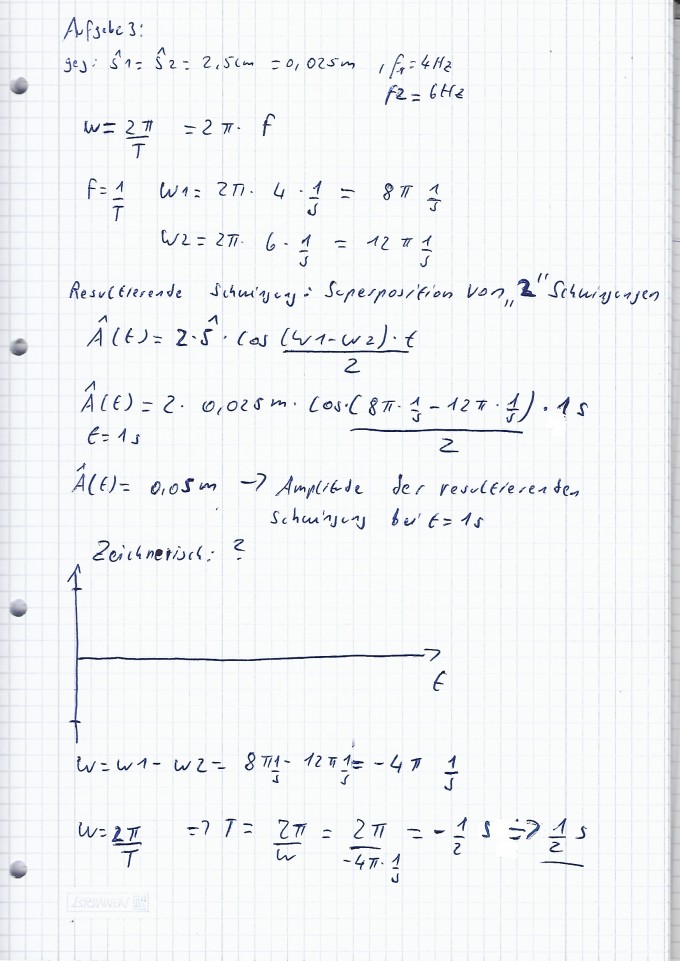 Aufgabe 3:
geg: ŝ1 = ŝ2 = 2,5cm = 0,025m , f1 = 4Hz
f2 = 6Hz
w = 2π/T = 2π · f
f = 1/T w1 = 2π · 4 · 1/s = 8π 1/s
w2 = 2π · 6 · 1/s = 12π 1/s
Resultierende Schwingung: Superposition von „2" Schwingungen
Â(t) = 2 · ŝ · cos (w1-w2)/2 · t
Â(t) = 2 · 0,025m · cos · (8π · 1/s - 12π · 1/s)/2 · 1s
t = 1s
Â(t) = 0,05m -> Amplitude der resultierenden
Schwingung bei t = 1s
Zeichnerisch: ?
t
w = w1 - w2 = 8π 1/s - 12π 1/s = -4π 1/s
w = 2π/T => T = 2π/w = 2π/(-4π · 1/s) = - 1/2 s => 1/2 s